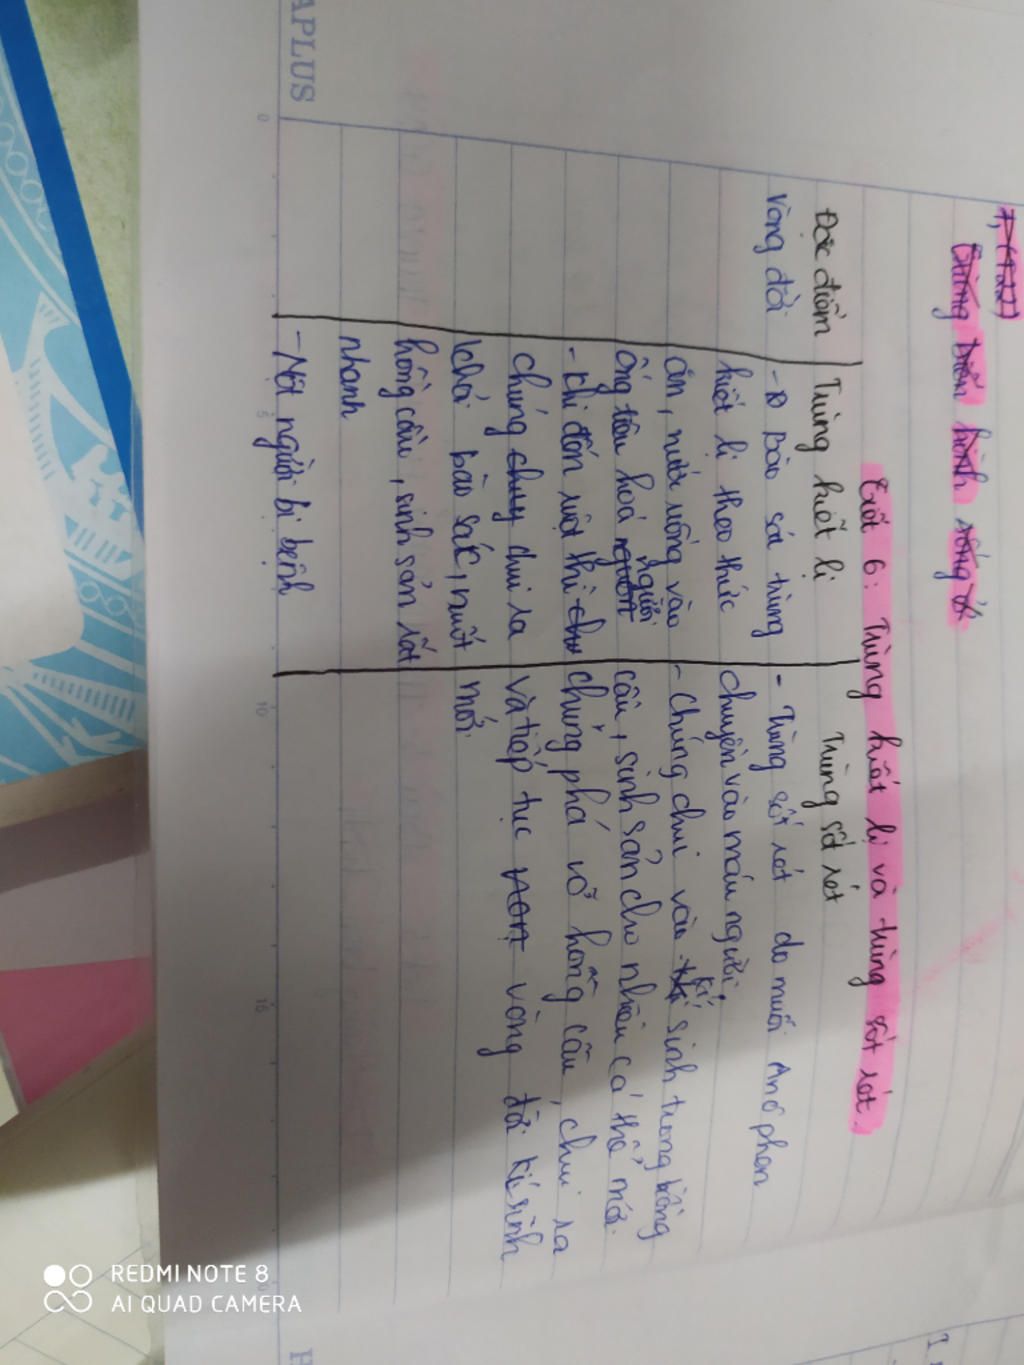 Tiết 6: Trùng kiết lị và trùng sốt rét.
Đặc điểm
Trùng kiết lị
Trùng sốt rét
Vòng đời
- Bào sác trùng
kiết lị theo thức
ăn, nước uống vào
ống tiêu hoá người
- Khi đến ruột thì
chúng chui ra
khỏi bào sác, nuốt
hồng cầu, sinh sản rất
nhanh
- Nơi người bị bệnh
- Trùng sốt rét do muỗi Anôphen
chuyền vào máu người.
- Chúng chui vào kí sinh trong hồng
cầu, sinh sản cho nhiều cá thể mới.
chúng phá vỡ hồng cầu, chui ra
và tiếp tục vòng đời kí sinh
mới.
APLUS
0
5
10
15
REDMI NOTE 8
AI QUAD CAMERA